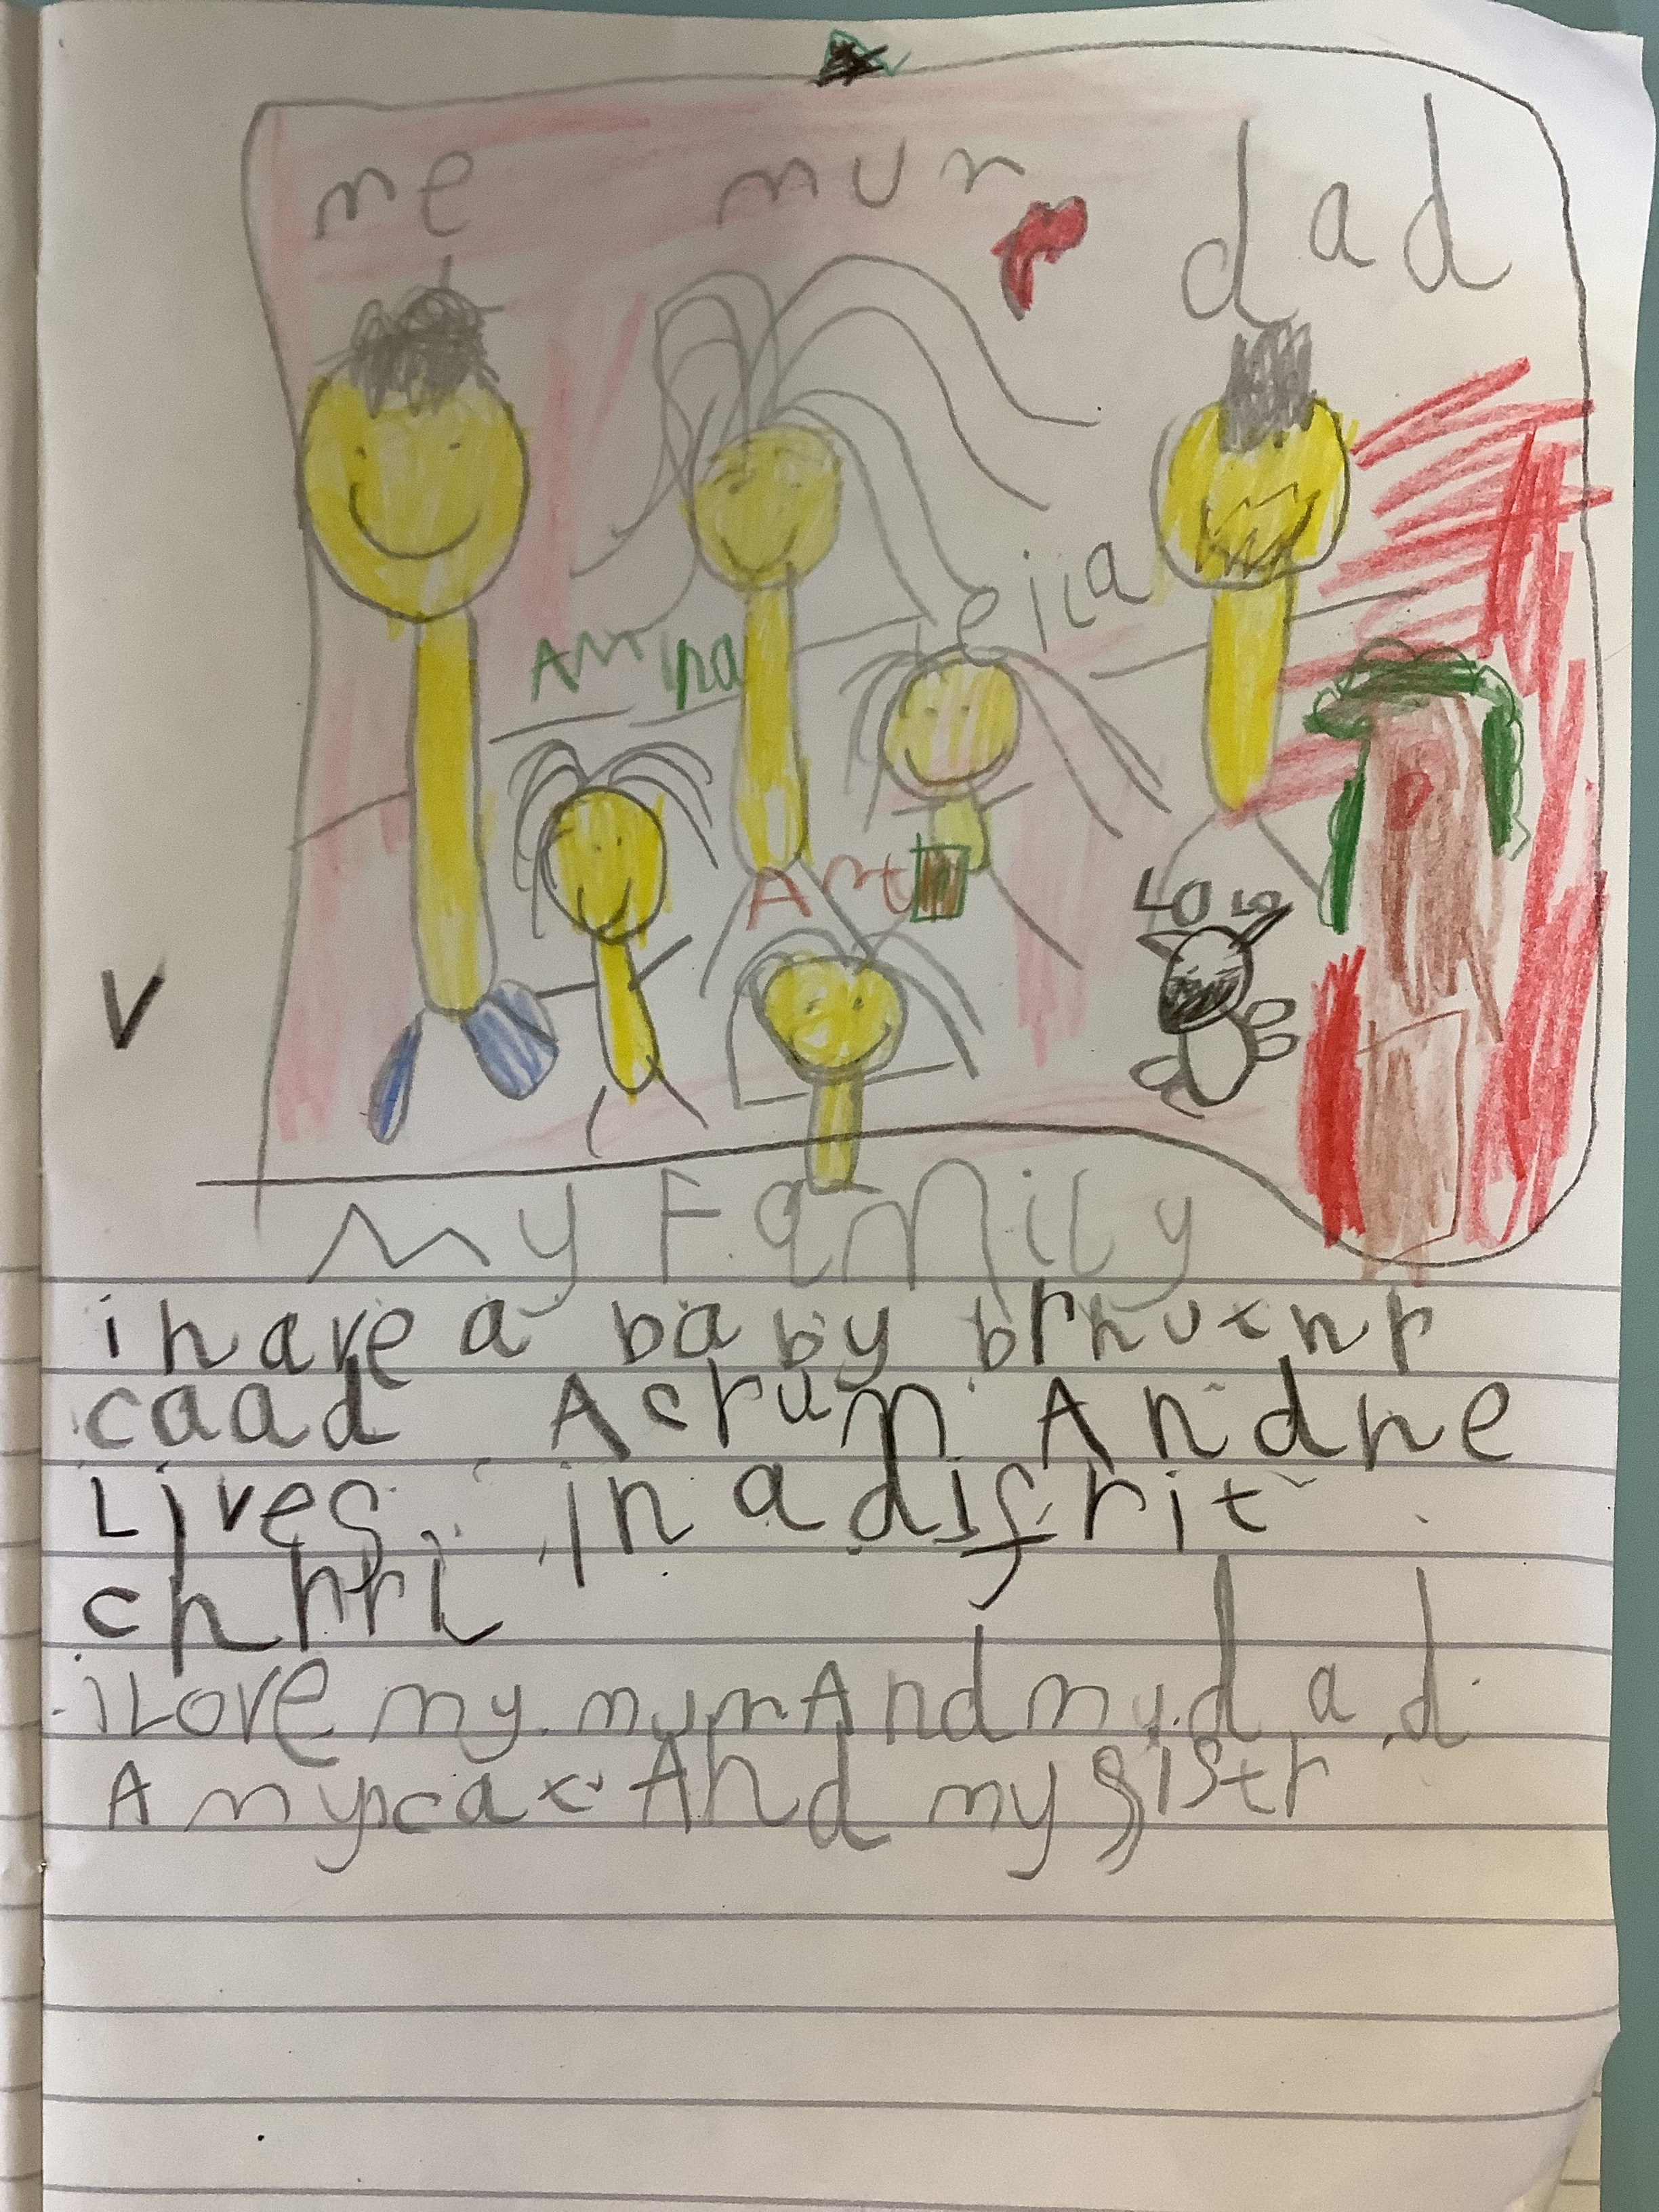 me mum dad
leila
Amina
Art
LoLo
V
my Family
i have a baby brhuthr
caad Acrum Andhe
Lives in a disfrit
chhri
i Love my mum And my dad
A my cat And my sistr